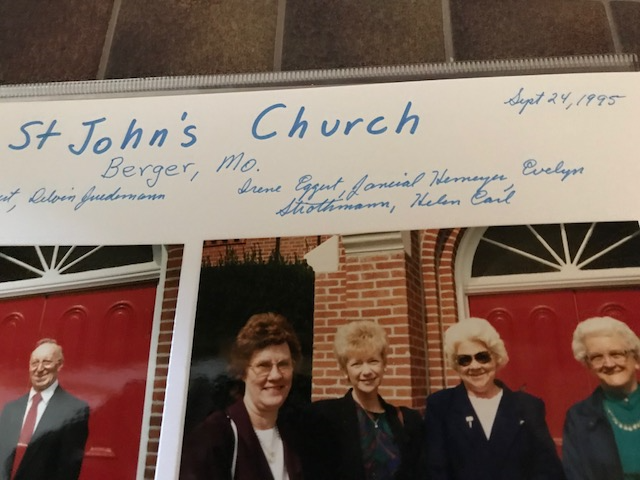 St John's Church
Sept 24, 1995
Berger, Mo.
Delvin Juedemann
Irene Eggert, Janeial Hemeyer, Evelyn
Strothmann, Helen Carl